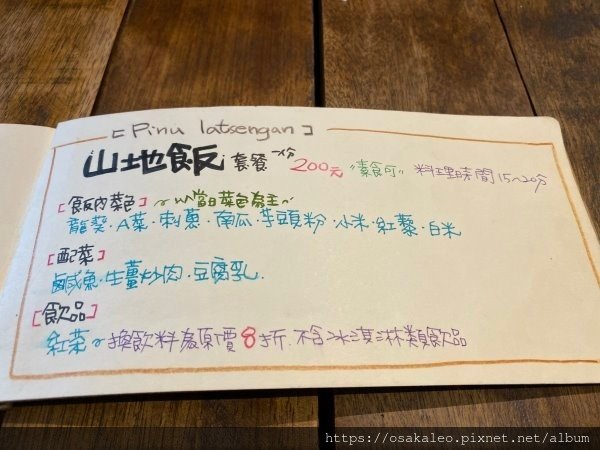 [Pinu latsengan]
山地飯 套餐一份 200元 "素食可" 料理時間15~20分
[飯內菜色] ~以當日菜色為主~
龍葵·A菜·刺蔥·南瓜·芋頭粉·小米·紅藜·白米
[配菜]
鹹魚·生薑炒肉·豆腐乳.
[飲品]
紅茶~換飲料為原價8折.不含冰淇淋類飲品
https://osakaleo.pixnet.net/album